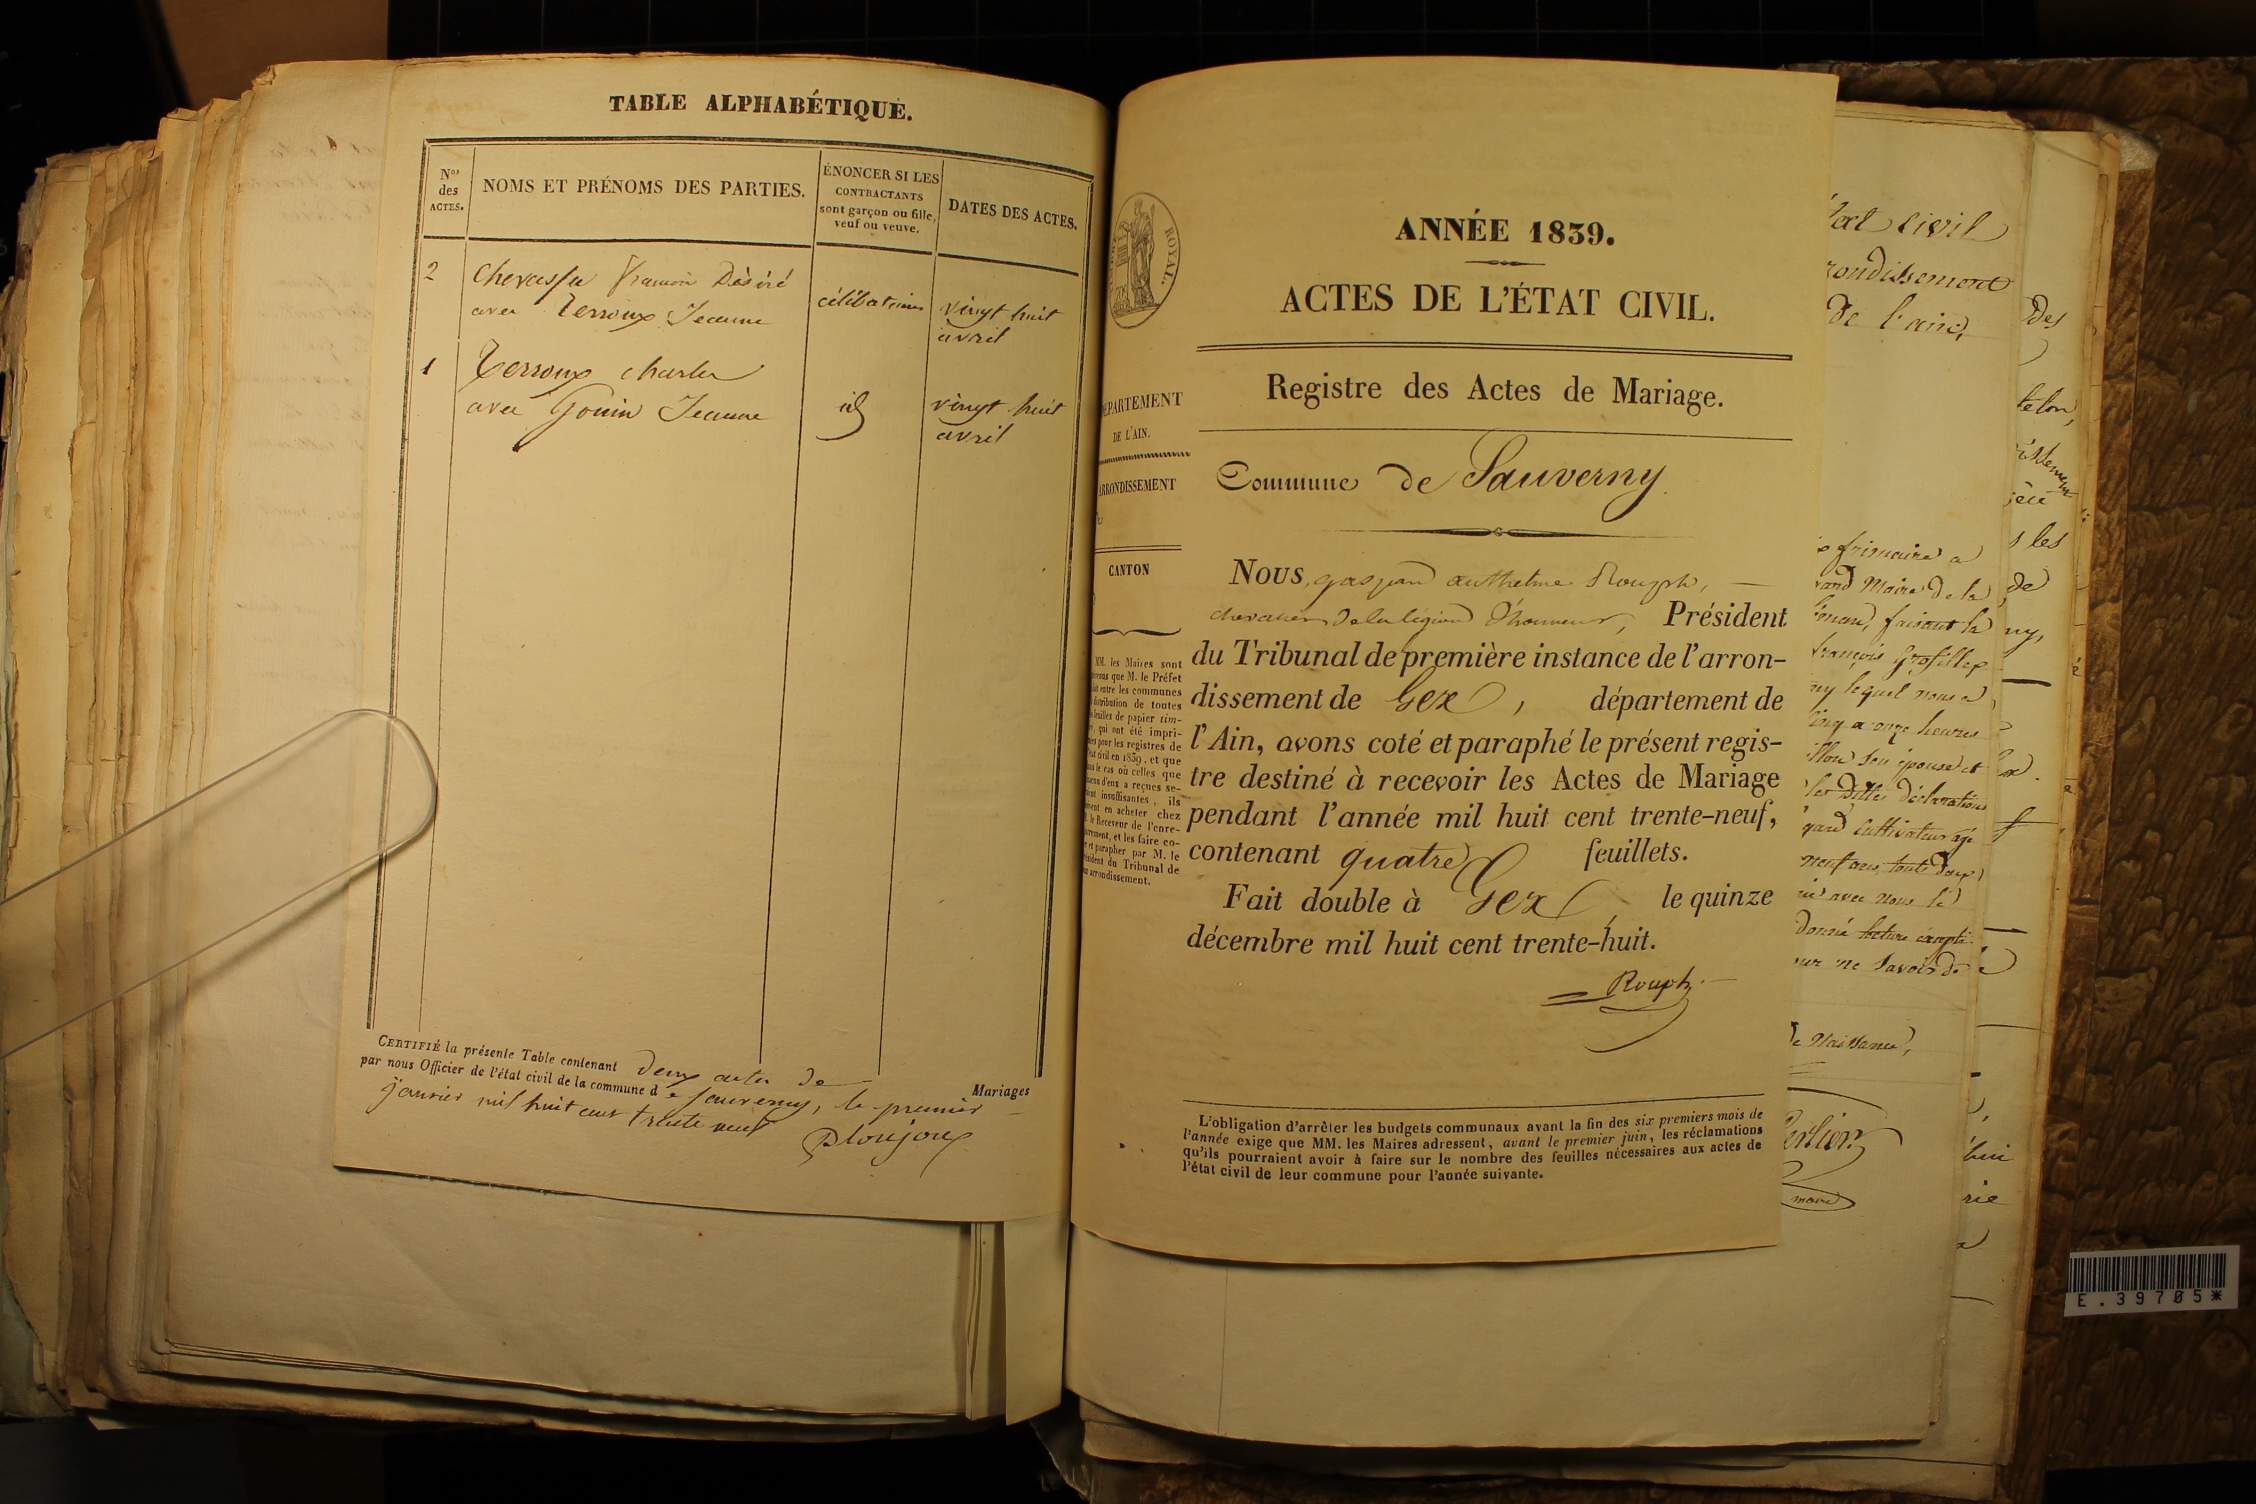 TABLE ALPHABÉTIQUE.
Nos des ACTES.
NOMS ET PRÉNOMS DES PARTIES.
ÉNONCER SI LES
CONTRACTANTS
sont garçon ou fille,
veuf ou veuve.
DATES DES ACTES.
2
Chevassu François Désiré
avec Terroux Jeanne
célibataires
vingt huit
avril
1
Terroux Charles
avec Gouin Jeanne
id
vingt huit
avril
CERTIFIÉ la présente Table contenant deux actes de Mariages
par nous Officier de l'état civil de la commune de Sauverny, le premier
janvier mil huit cent trente neuf
ROYAL.
ANNÉE 1839.
ACTES DE L'ÉTAT CIVIL.
Registre des Actes de Mariage.
DÉPARTEMENT
DE L'AIN.
ARRONDISSEMENT
CANTON
Commune de Sauverny.
NOUS, gaspard anthelme Rouph,
chevalier de la légion d'honneur, Président
du Tribunal de première instance de l'arron-
dissement de Gex, département de
l'Ain, avons coté et paraphé le présent regis-
tre destiné à recevoir les Actes de Mariage
pendant l'année mil huit cent trente-neuf,
contenant quatre feuillets.
Fait double à Gex le quinze
décembre mil huit cent trente-huit.
Rouph
MM. les Maires sont
que M. le Préfet
entre les communes
distribution de toutes
feuilles de papier tim-
qui ont été impri-
pour les registres de
civil en 1839, et que
le cas où celles que
d'eux a reçues se-
insuffisantes, ils
en acheter chez
le Receveur de l'enre-
et les faire co-
et parapher par M. le
Président du Tribunal de
arrondissement.
L'obligation d'arrêter les budgets communaux avant la fin des six premiers mois de
l'année exige que MM. les Maires adressent, avant le premier juin, les réclamations
qu'ils pourraient avoir à faire sur le nombre des feuilles nécessaires aux actes de
l'état civil de leur commune pour l'année suivante.
civil
de l'ain,
frimaire a
Maire de la
faisant la
françois grosfillex
lequel nous a
cinq a onze heures
son épouse et
déclarations
cultivateur agé
avec nous le
donné lecture excepté
ne savoir
de Naissance,
des
les
de
E.39705*